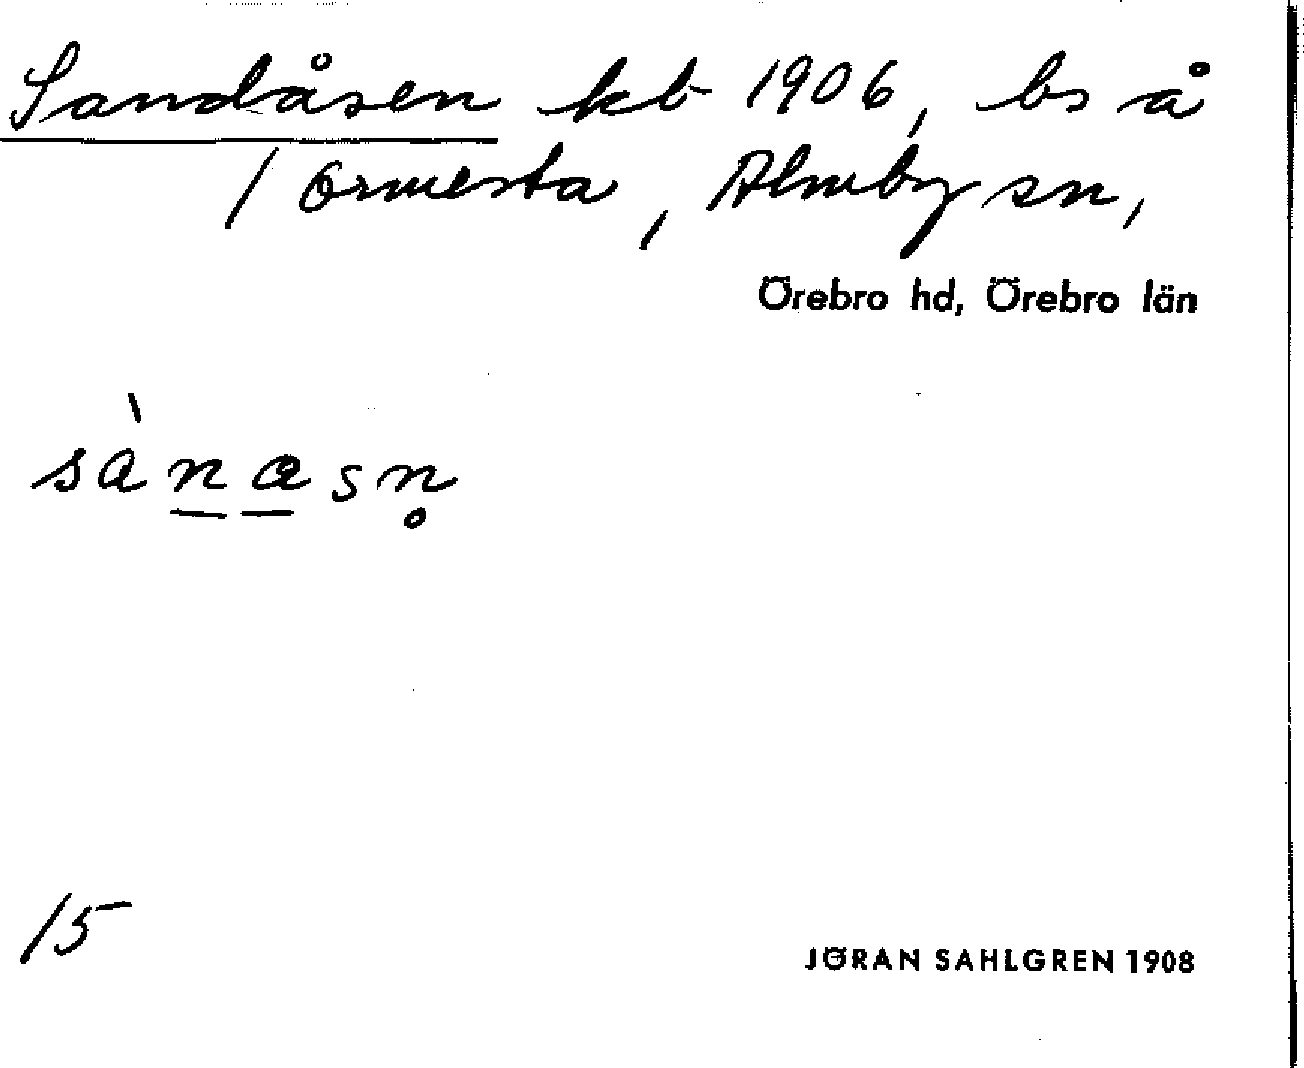 Sandåsen kb 1906, bs å
/ Ormesta, Almby sn,
Örebro hd, Örebro län
sànasn̥
15
JÖRAN SAHLGREN 1908